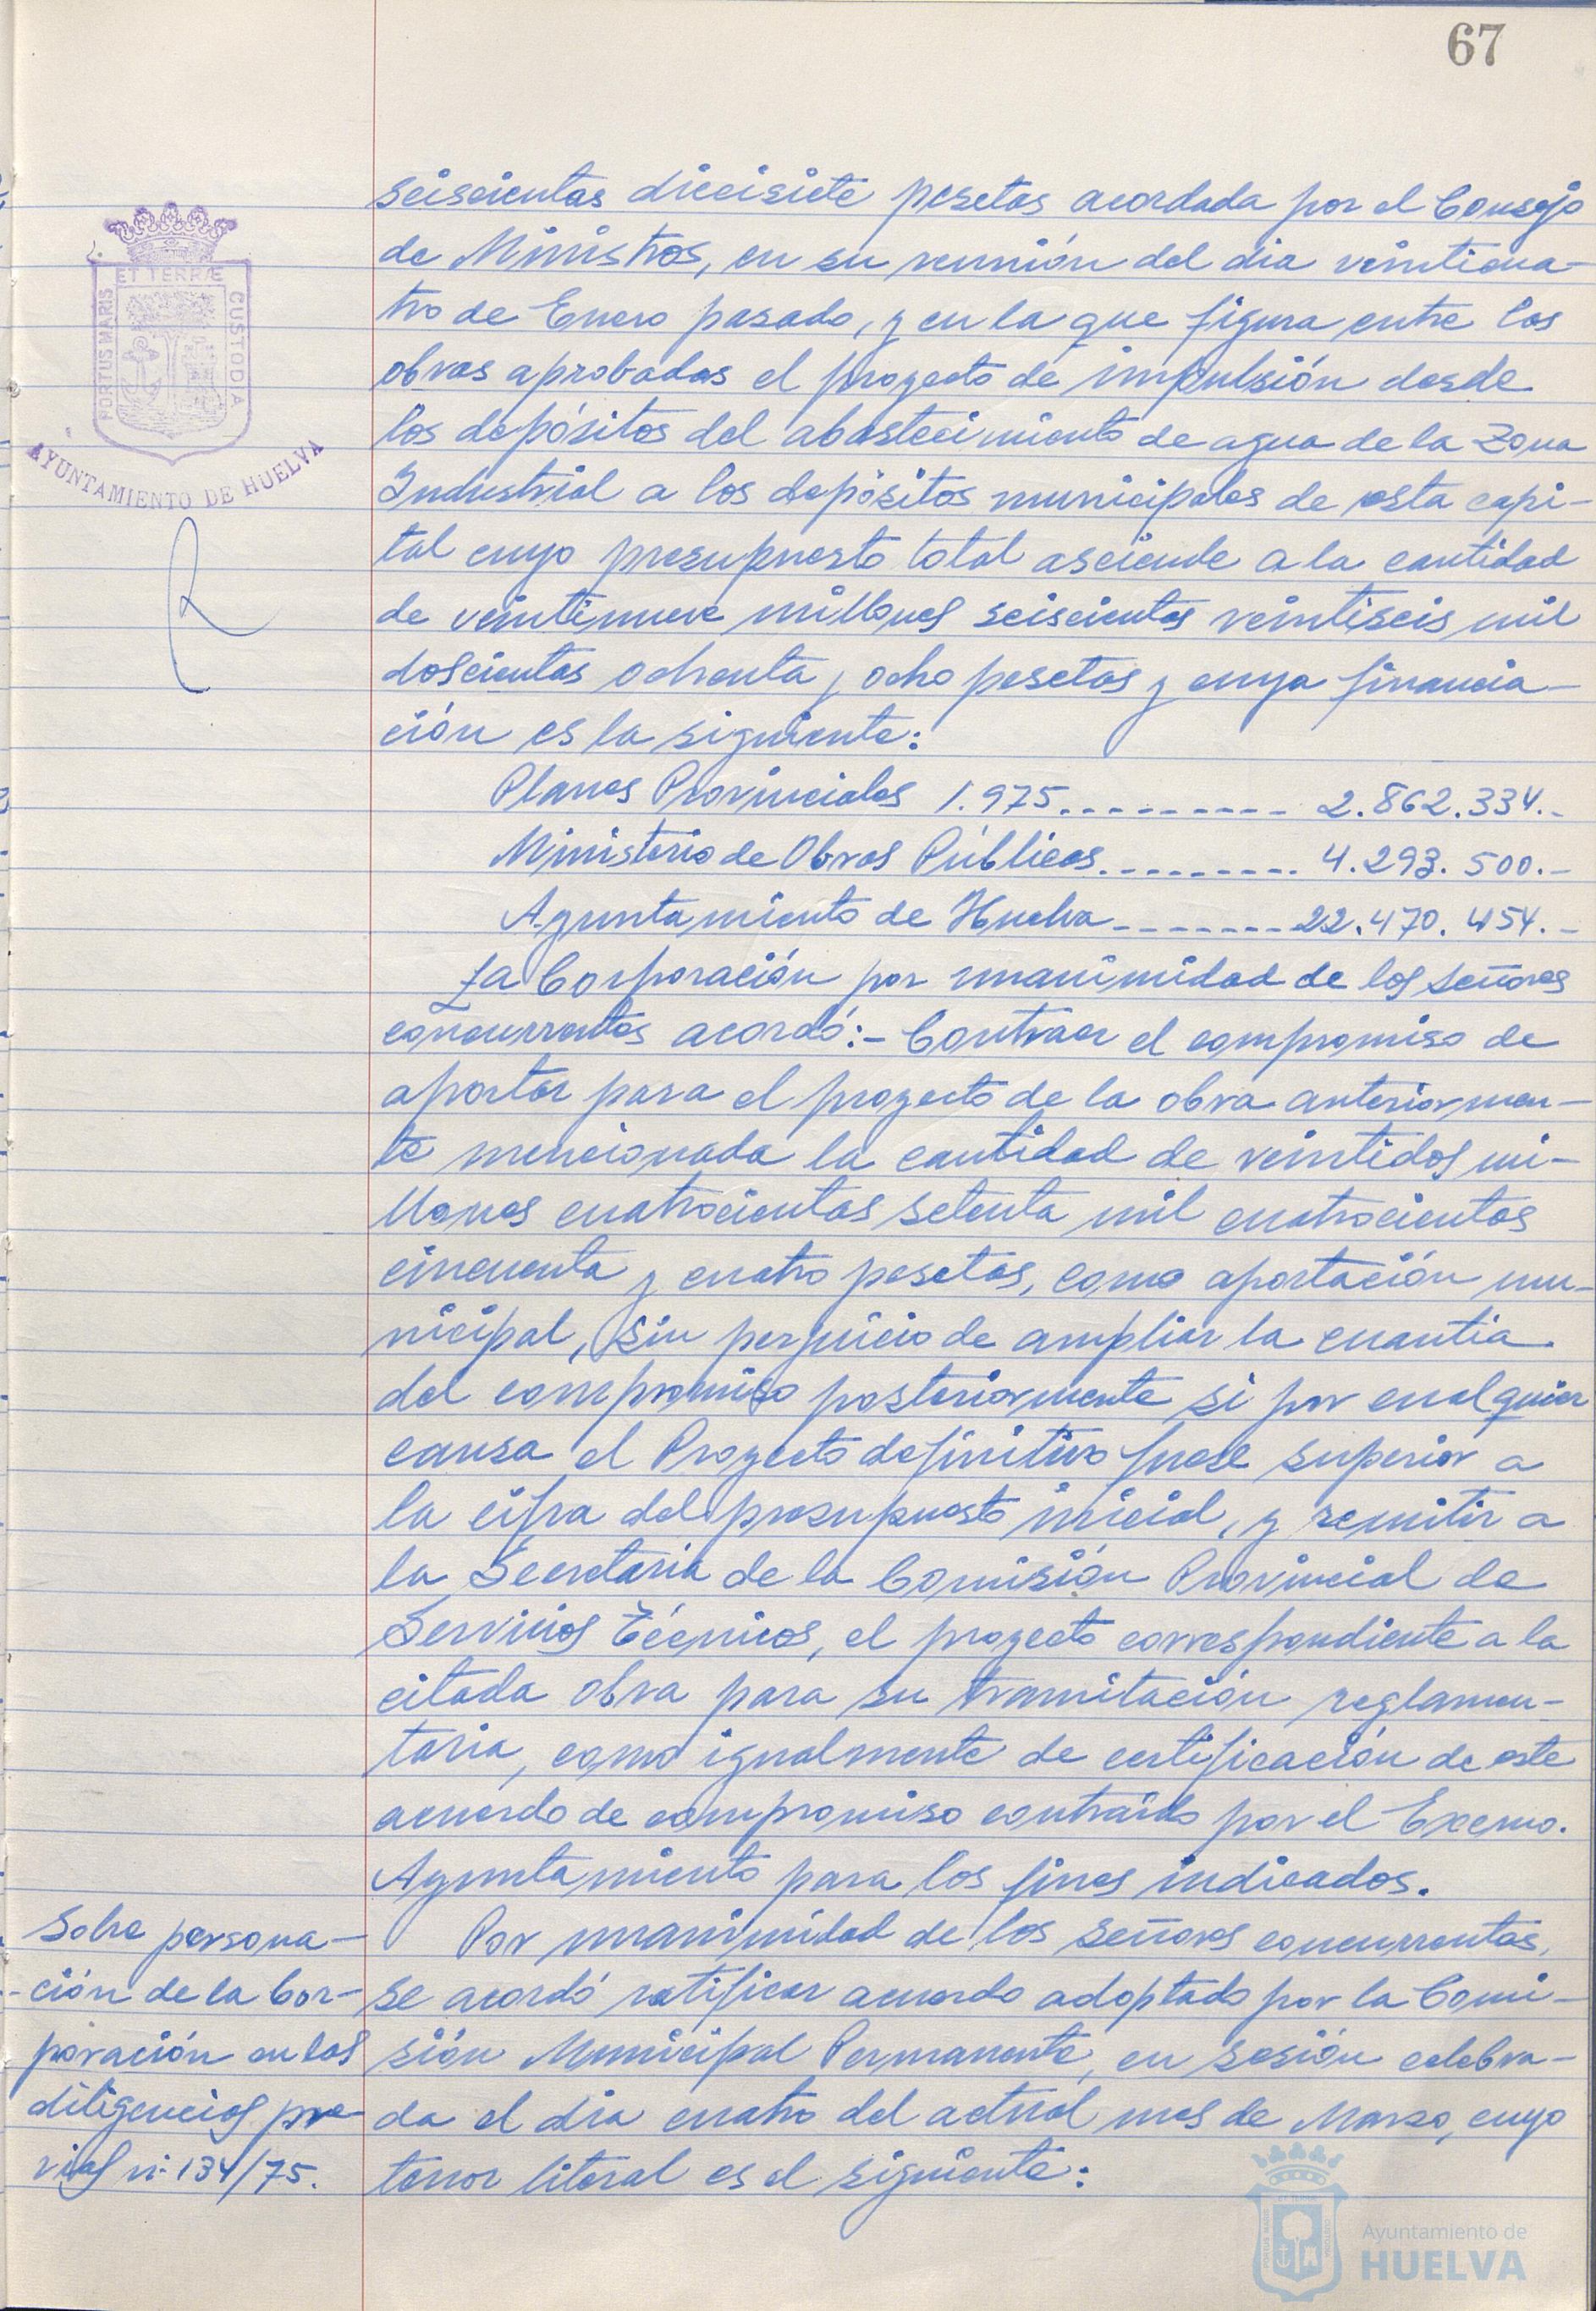 67
PORTUS MARIS
ET TERRÆ
CUSTODIA
AYUNTAMIENTO DE HUELVA
seiscientas diecisiete pesetas acordada por el Consejo
de Ministros, en su reunión del dia veinticua-
tro de Enero pasado, y en la que figura entre las
obras aprobadas el proyecto de impulsión desde
los depósitos del abastecimiento de agua de la Zona
Industrial a los depósitos municipales de esta capi-
tal cuyo presupuesto total asciende a la cantidad
de veintinueve millones seiscientas veintiseis mil
doscientas ochenta y ocho pesetas y cuya financia-
ción es la siguiente:
Planes Provinciales 1.975.--------- 2.862.334.-
Ministerio de Obras Públicas.-------- 4.293.500.-
Ayuntamiento de Huelva-------22.470.454.-
La Corporación por unanimidad de los señores
concurrentes acordó:- Contraer el compromiso de
aportar para el proyecto de la obra anteriormen-
te mencionada la cantidad de veintidos mi-
llones cuatrocientas setenta mil cuatrocientas
cincuenta y cuatro pesetas, como aportación mu-
nicipal, sin perjuicio de ampliar la cuantia
del compromiso posteriormente si por cualquier
causa el Proyecto definitivo fuese superior a
la cifra del presupuesto inicial, y remitir a
la Secretaria de la Comisión Provincial de
Servicios Técnicos, el proyecto correspondiente a la
citada obra para su tramitación reglamen-
taria, como igualmente de certificación de este
acuerdo de compromiso contraido por el Excmo.
Ayuntamiento para los fines indicados.
Sobre persona-
ción de la Cor-
poración en las
diligencias pre-
vias nº 134/75.
Por unanimidad de los señores concurrentes,
se acordó ratificar acuerdo adoptado por la Comi-
sión Municipal Permanente, en sesión celebra-
da el dia cuatro del actual mes de Marzo, cuyo
tenor literal es el siguiente:
Ayuntamiento de
HUELVA